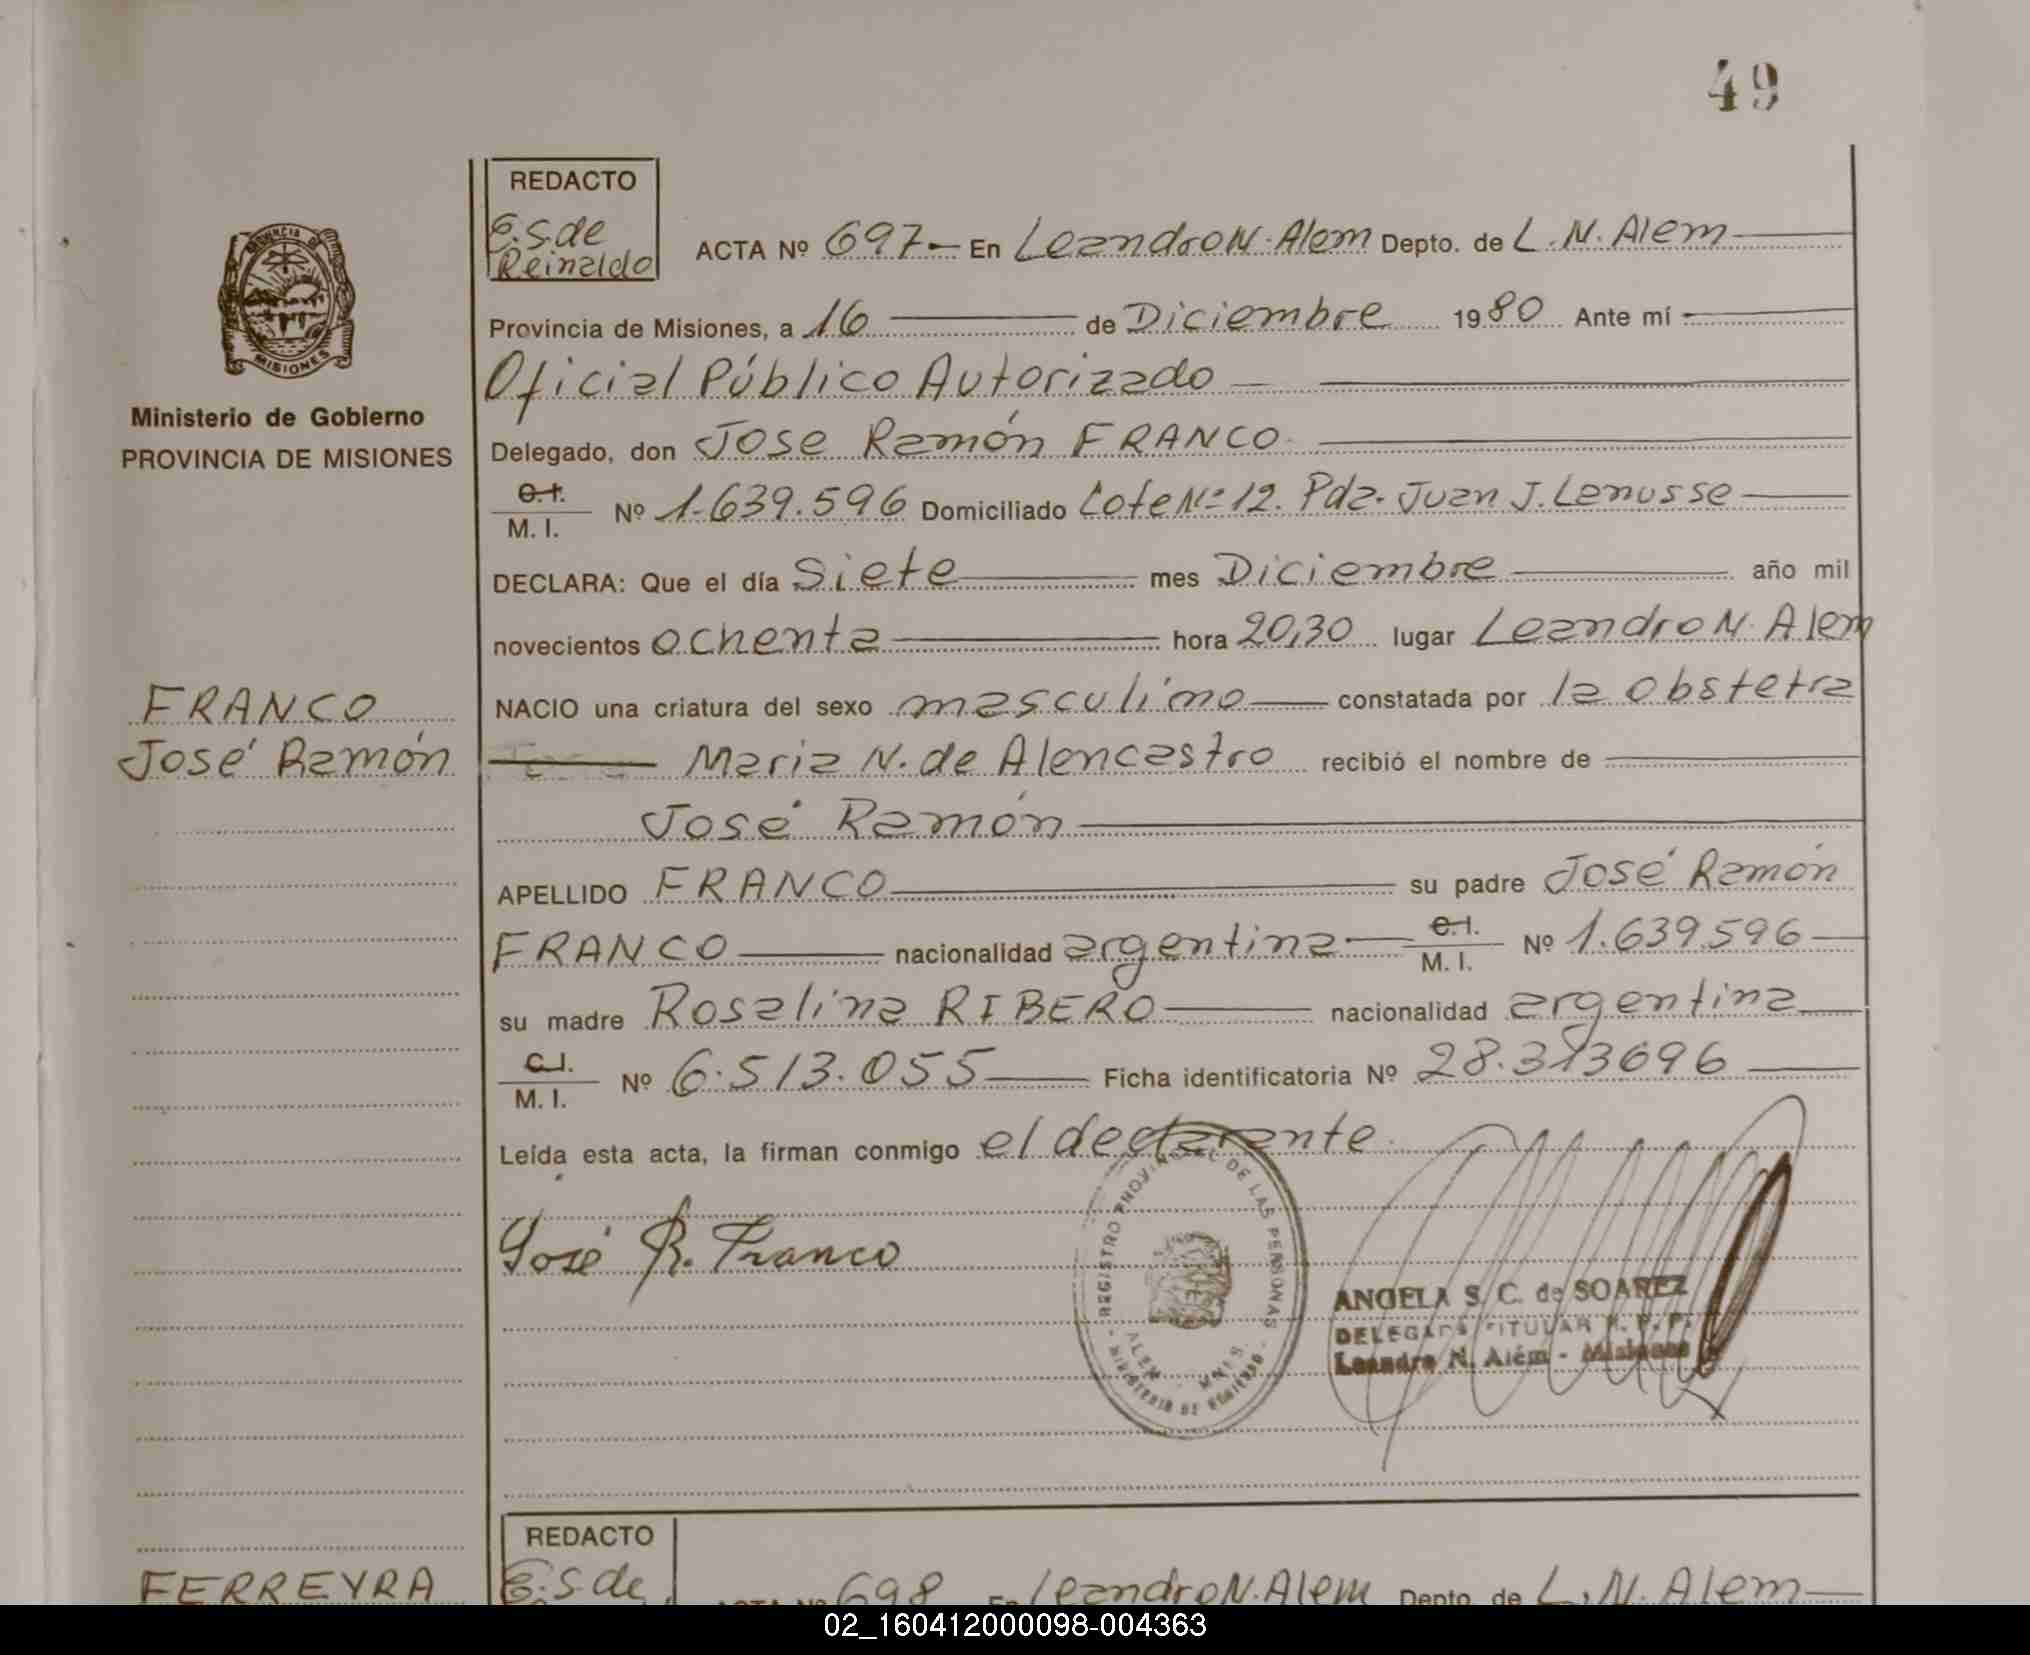 49
REDACTO
E.S.de
Reinaldo
ACTA Nº 697- En Leandro N. Alem Depto. de L. N. Alem
PROVINCIA DE
MISIONES
Provincia de Misiones, a 16 de Diciembre 1980 Ante mí
Oficial Público Autorizado
Ministerio de Gobierno
PROVINCIA DE MISIONES
Delegado, don Jose Ramón FRANCO
C.I.
M. I. Nº 1.639.596 Domiciliado Lote Nº 12. Pda. Juan J. Lanusse
DECLARA: Que el día Siete mes Diciembre año mil
novecientos ochenta hora 20,30 lugar Leandro N. Alem
FRANCO
José Ramón
NACIO una criatura del sexo masculino constatada por la obstetra
Maria N. de Alencastro recibió el nombre de
José Ramón
APELLIDO FRANCO su padre José Ramón
FRANCO nacionalidad argentina C.I. M. I. Nº 1.639.596
su madre Rosalina RIBERO nacionalidad argentina
C.I.
M. I. Nº 6.513.055 Ficha identificatoria Nº 28.313696
Leída esta acta, la firman conmigo el declarante
José R. Franco
REGISTRO PROVINCIAL DE LAS PERSONAS
ALEM - MNES
MINISTERIO DE GOBIERNO
ANGELA S. C. de SOAREZ
DELEGADA TITULAR R. P. P.
Leandro N. Além - Misiones
REDACTO
FERREYRA
E.S.de
ACTA Nº 698 En Leandro N. Alem Depto. de L. N. Alem
02_160412000098-004363